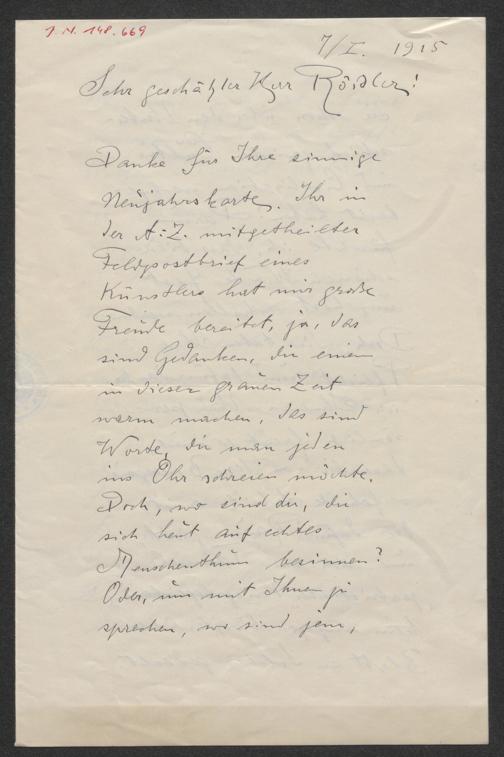 J. N. 148.669
7/I. 1915
Sehr geschätzter Herr Rößler!
Danke für Ihre sinnige
Neujahrskarte. Ihr in
der A.-Z. mitgetheilter
Feldpostbrief eines
Künstlers hat mir große
Freude bereitet, ja, das
sind Gedanken, die einem
in dieser grauen Zeit
warm machen, das sind
Worte, die man jedem
ins Ohr schreien möchte.
Doch, wo sind die, die
sich heut auf echtes
Menschenthum besinnen?
Oder, um mit Ihnen zu
sprechen, wo sind jene,